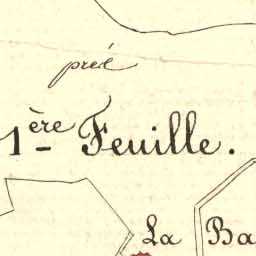 pré
1ère Feuille.
La Ba